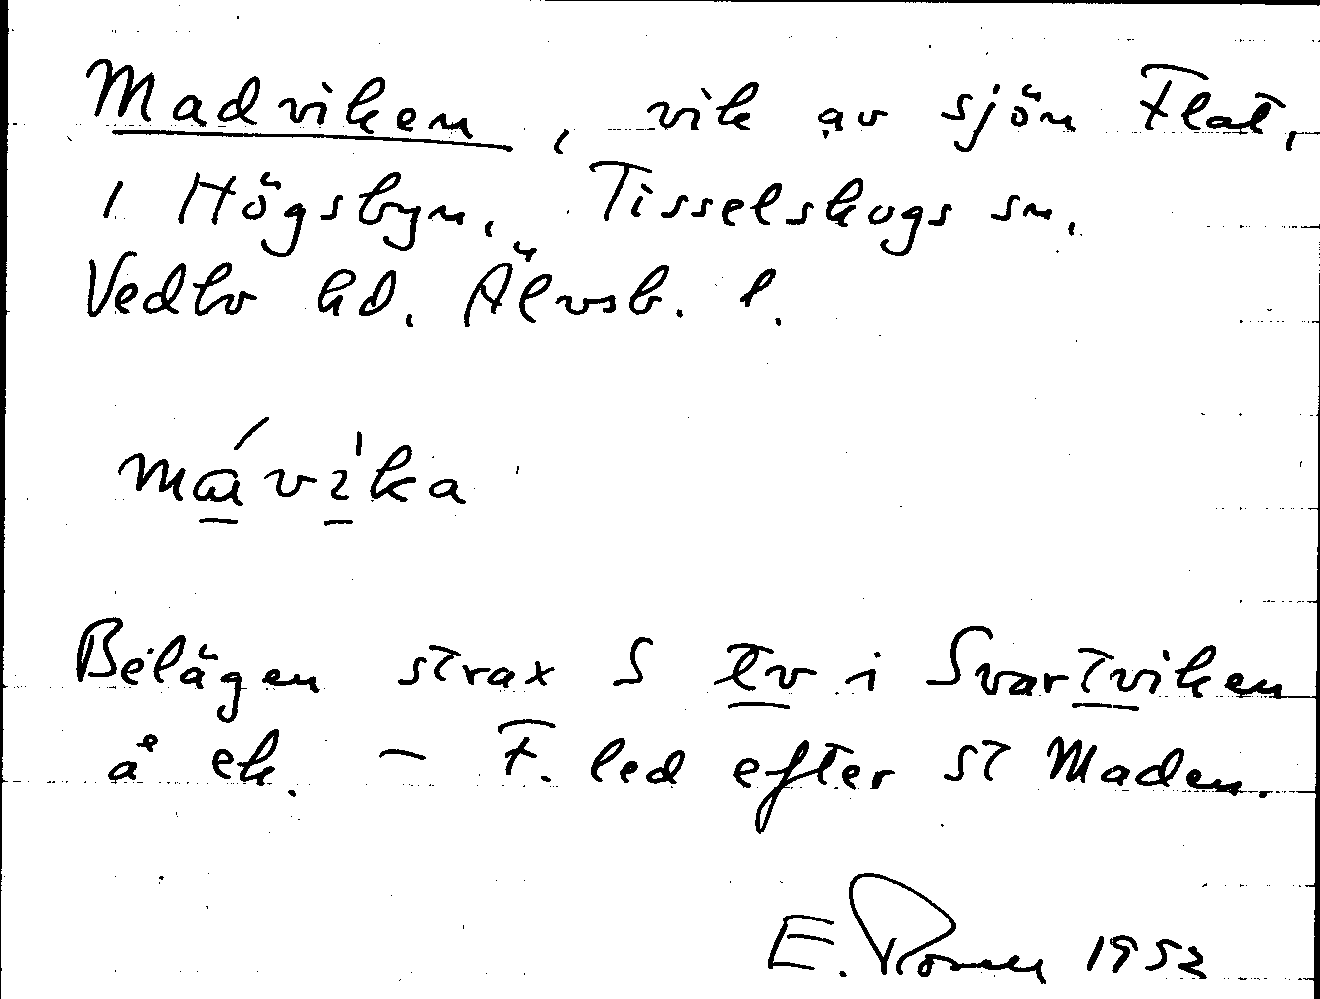 Madviken, vik av sjön Flat,
i Högsbyn, Tisselskogs sn,
Vedbo hd. Älvsb. l.
mávi̱ka
Belägen strax S tv i Svartviken
å ek. – F. led efter st Maden.
E. 1952